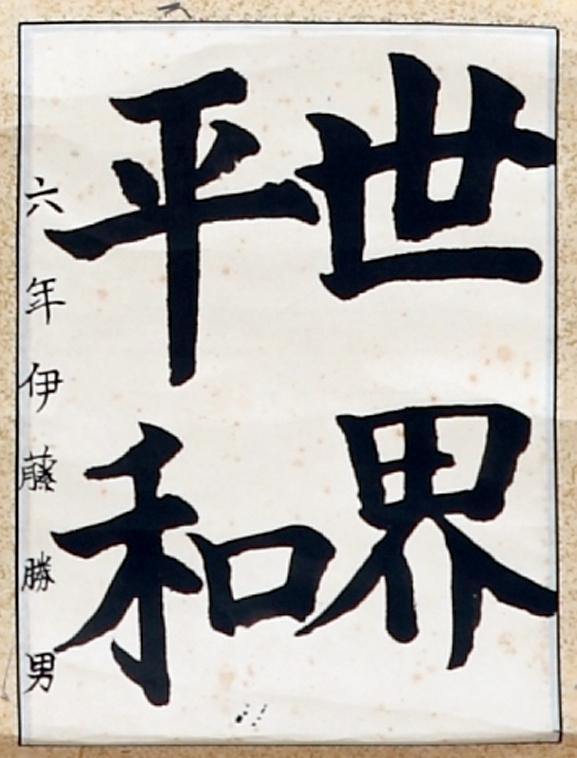 世界
平和
六年伊藤勝男